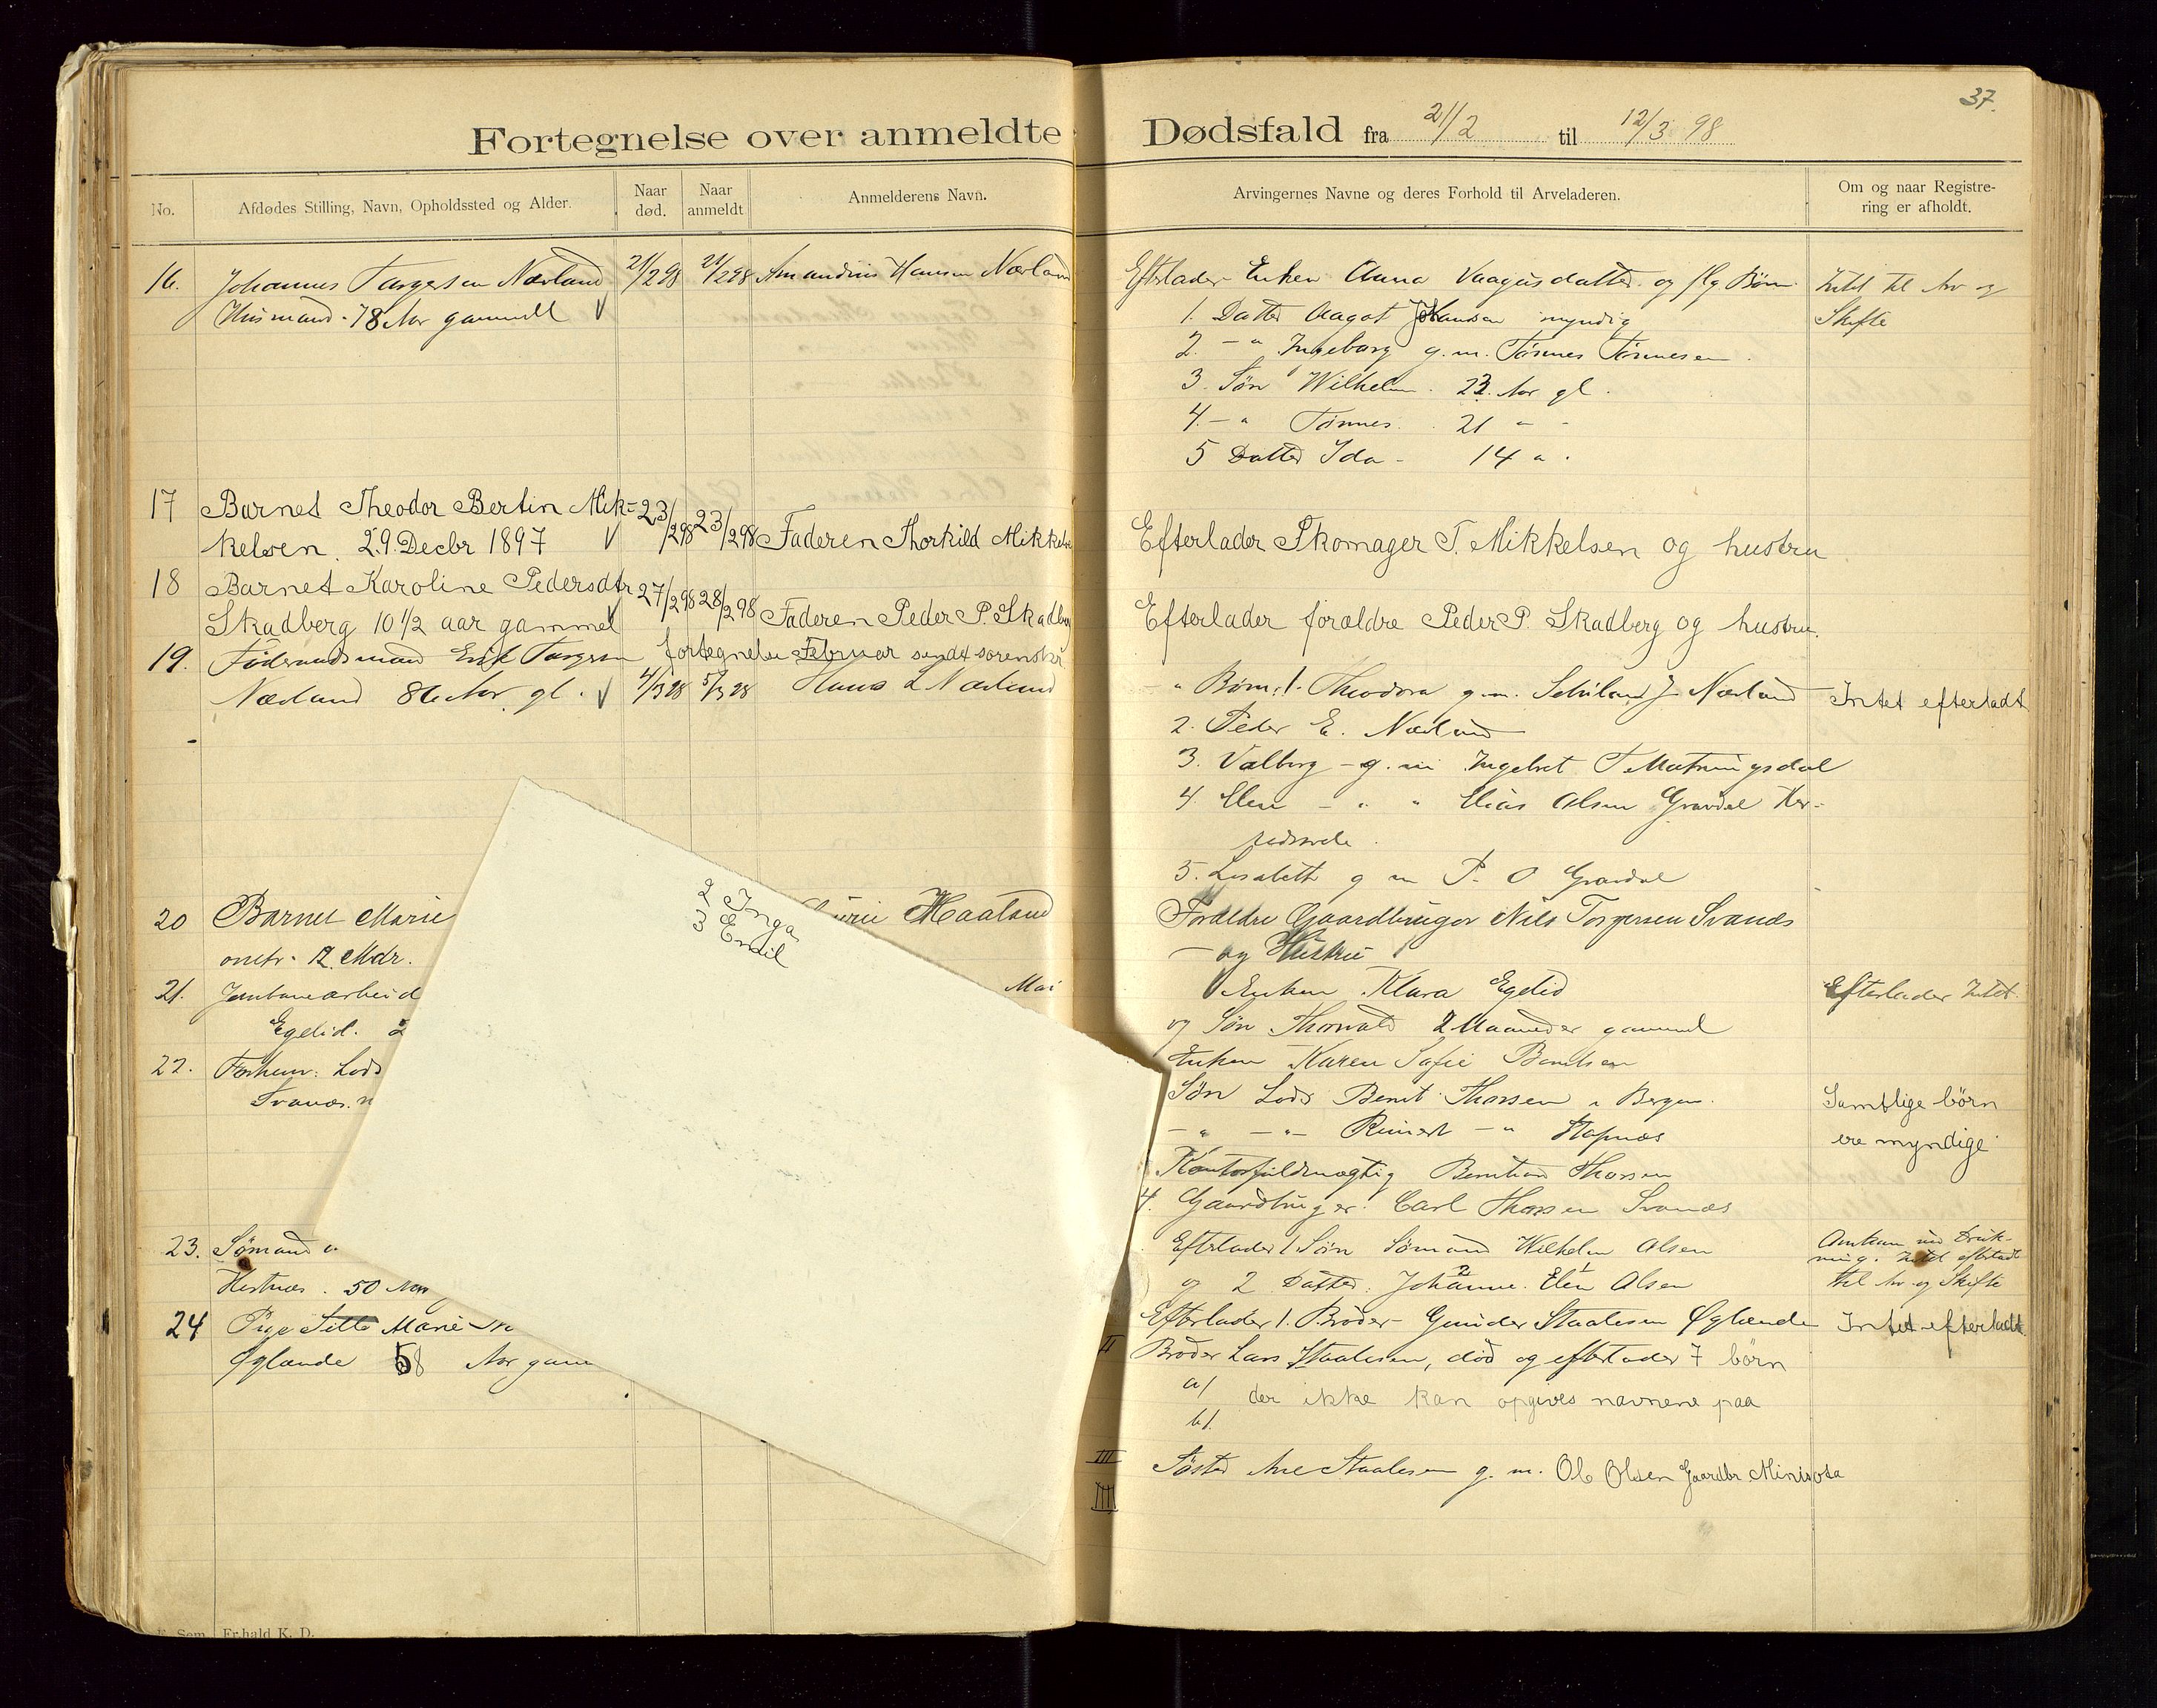 37.
Fortegnelse over anmeldte Dødsfald fra 21/2 til 12/3 98
No.
Afdødes Stilling, Navn, Opholdssted og Alder.
Naar død.
Naar anmeldt
Anmelderens Navn.
Arvingernes Navne og deres Forhold til Arveladeren.
Om og naar Registre-
ring er afholdt.
16. Johannes Torgersen Nærland 21/2 98 21/2 98 Amandus Hansen Nærland
Husmand - 78 Aar gammell
Efterlader Enken Anna Vaagesdatter og flg Børn
1. Datter Aagot Johansen myndig
2. - " Ingeborg g. m. Tønnes Tønnesen
3. Søn Wilhelm 23 Aar gl.
4. - " Tønnes 21 " -
5 Datter Ida - 14 " .
Intet til Arv og
Skifte
17 Barnet Theodor Bertin Mik-
kelsen. 29. Decbr 1897 23/2 98 23/2 98 Faderen Thorkild Mikkelse
Efterlader Skomager T. Mikkelsen og hustru
18 Barnet Karoline Pedersdtr 27/2 98 28/2 98
Skadberg 10 1/2 aar gammel Faderen Peder P. Skadberg
Efterlader forældre Peder P. Skadberg og hustru.
fortegnelse Februar sendt sorenskr
19. Føderaadsmand Erik Torgersen
Nærland 86 Aar gl. 4/3 98 5/3 98 Hans Nærland
" Børn: 1. Theodora g. m. J. Nærland
Intet efterladt
2. Peder E. Nærland
3. Valborg - g. m Ingebret T
4. Elen - " " Elias Olsen Gravdal
5. Lisabeth g m P. O Gravdal
20 Barnet Marie
12 Mdr.
Haaland
Forældre Gaardbruger Nils Torgersen Svanes
- og Hustru
21. Jernbanearbeid
Egelid. 2
Enken Klara Egelid
og Søn Thorvald 2 Maaneder gammel
Efterlader Intet
22. Forhenv: Lods
Svanes.
Enken Karen Sofie Berntsen
Søn Lods Bernt Thorsen i Bergen.
- " - " - Reinert - " Stapnes
Kontorfuldmægtig Berntine Thorsen
4. Gaardbruger Carl Thorsen Svanes
Samtlige børn
ere myndige
23. Sømand
Hestnes. 50 Aar
Efterlader 1 Søn Sømand Wilhelm Olsen
og 2 Datter: Johanne 2 Elen 1 Olsen
Omkom ved Druk-
ning. Intet efterladt
til Arv og Skifte
24 Pige Marie
Øglænde 58 Aar gam
Efterlader 1. Broder - Gunder Staalesen Øglænde
Intet efterladt
II Broder Lars Staalesen, død og efterlader 7 børn
a/ der ikke kan opgives navnene paa
b/.
III Søster Ane Staalesen g. m. Ole Olsen Gaardbr Minisota
IIII
2 Inga
3 Emil